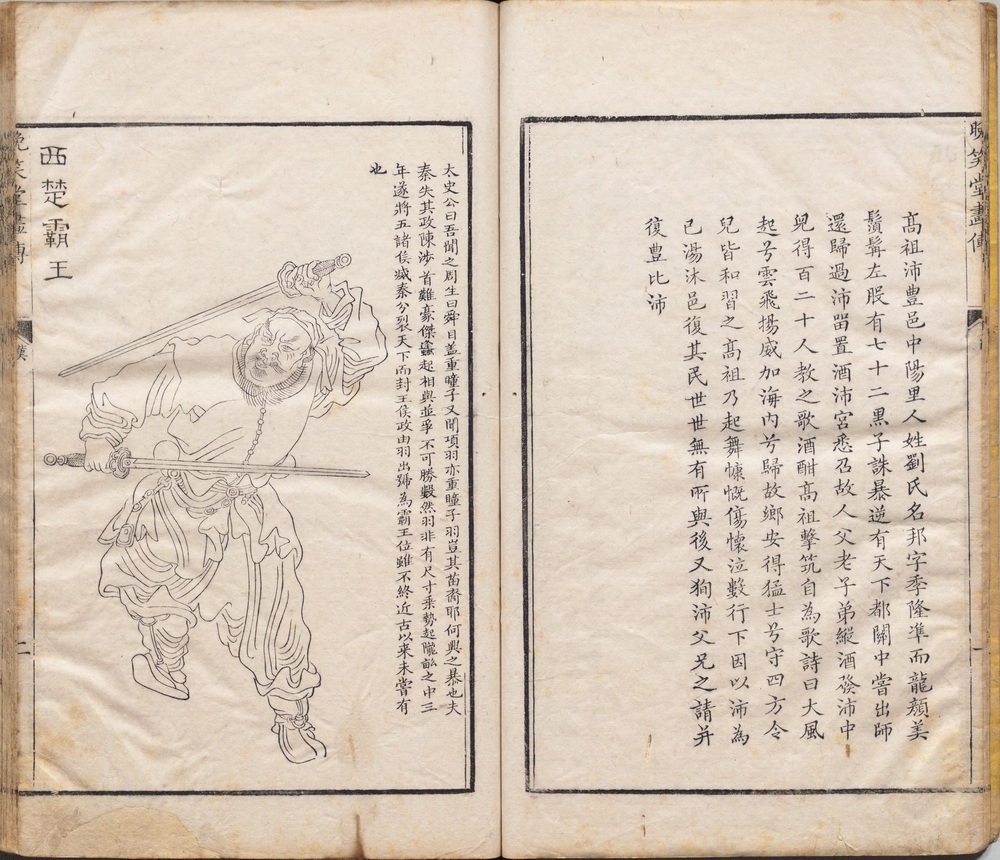 晚笑堂畫傳
高祖沛豊邑中陽里人姓劉氏名邦字季隆準而龍顔美
鬚髯左股有七十二黒子誅暴逆有天下都關中嘗出師
還歸過沛畱置酒沛宮悉召故人父老子弟縱酒發沛中
兒得百二十人教之歌酒酣高祖擊筑自為歌詩曰大風
起兮雲飛揚威加海内兮歸故鄉安得猛士兮守四方令
兒皆和習之高祖乃起舞慷慨傷懷泣數行下因以沛為
已湯沐邑復其民世世無有所與後又狥沛父兄之請并
復豊比沛
太史公曰吾聞之周生曰舜目蓋重瞳子又聞項羽亦重瞳子羽豈其苗裔耶何興之暴也夫
秦失其政陳涉首難豪傑蠭起相與並爭不可勝數然羽非有尺寸乗勢起隴畝之中三
年遂將五諸侯滅秦分裂天下而封王侯政由羽出號為霸王位雖不終近古以来未嘗有
也
西楚霸王
晚笑堂畫傳
漢
二